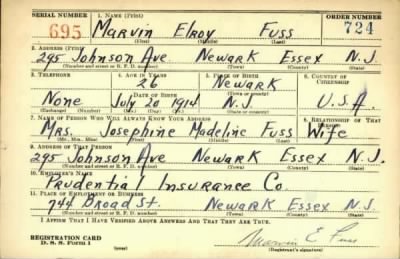 SERIAL NUMBER 1. NAME (Print) ORDER NUMBER
695 Marvin Elroy Fuss 724
(First) (Middle) (Last)
2. ADDRESS (Print)
295 Johnson Ave. Newark Essex N.J.
(Number and street or R. F. D. number) (Town) (County) (State)
3. TELEPHONE 4. AGE IN YEARS 5. PLACE OF BIRTH 6. COUNTRY OF CITIZENSHIP
26 Newark
(Town or county)
None July 20 1914 N.J. U.S.A.
(Exchange) (Number) (Mo.) (Day) (Yr.) (State or country)
7. NAME OF PERSON WHO WILL ALWAYS KNOW YOUR ADDRESS 8. RELATIONSHIP OF THAT PERSON
Mrs. Josephine Madeline Fuss Wife
(Mr., Mrs., Miss) (First) (Middle) (Last)
9. ADDRESS OF THAT PERSON
295 Johnson Ave Newark Essex N.J.
(Number and street or R. F. D. number) (Town) (County) (State)
10. EMPLOYER'S NAME
Prudential Insurance Co.
11. PLACE OF EMPLOYMENT OR BUSINESS
744 Broad St. Newark Essex N.J.
(Number and street or R. F. D. number) (Town) (County) (State)
I AFFIRM THAT I HAVE VERIFIED ABOVE ANSWERS AND THAT THEY ARE TRUE.
REGISTRATION CARD
D. S. S. Form 1 (over) Marvin E. Fuss
(Registrant's signature)